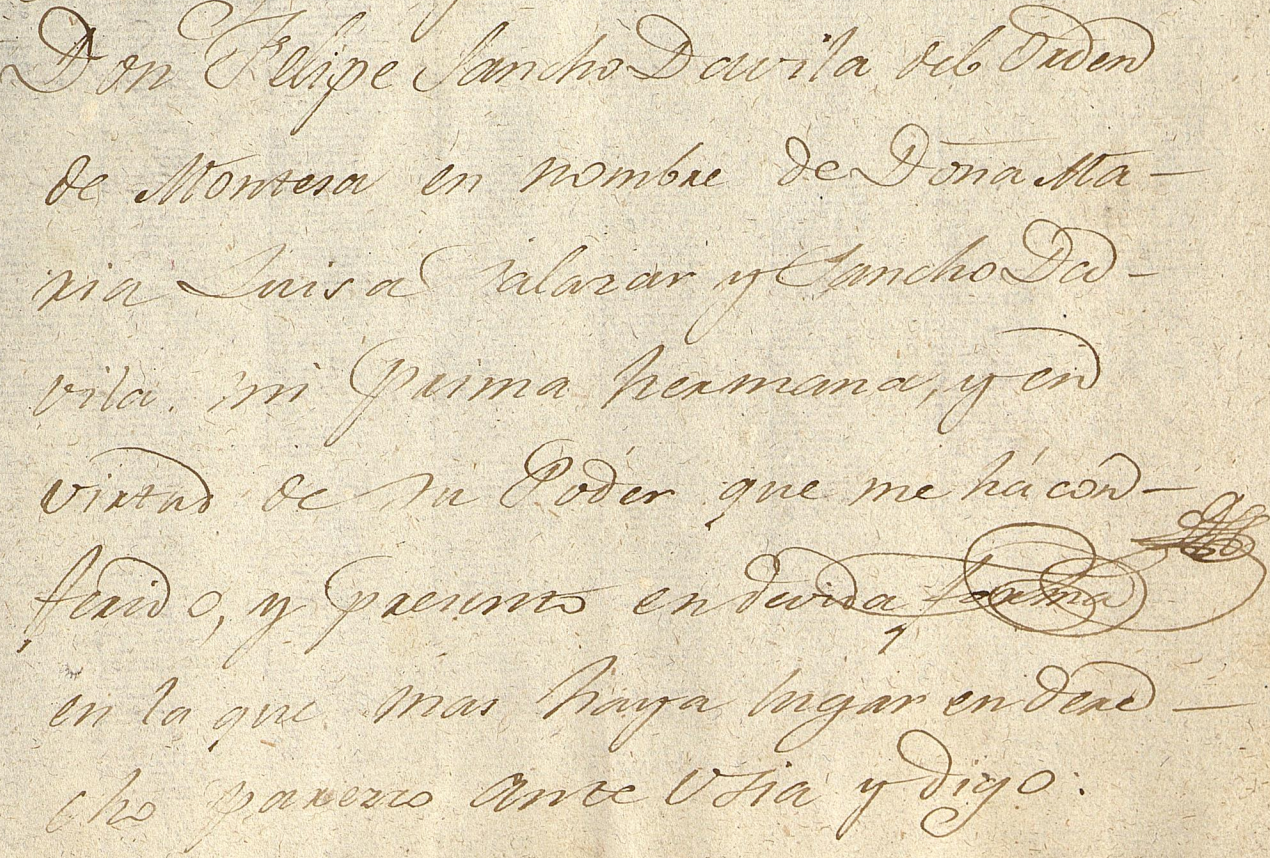 Don Felipe Sancho Davila del Orden
de Montesa en nombre de Doña Ma-
ria Luisa Salazar y Sancho Da-
vila mi prima hermana, y en
virtud de su Poder que me há con-
ferido, y presento en devida forma
en la que mas haya lugar en dere-
cho parezco ante Vsia y digo: